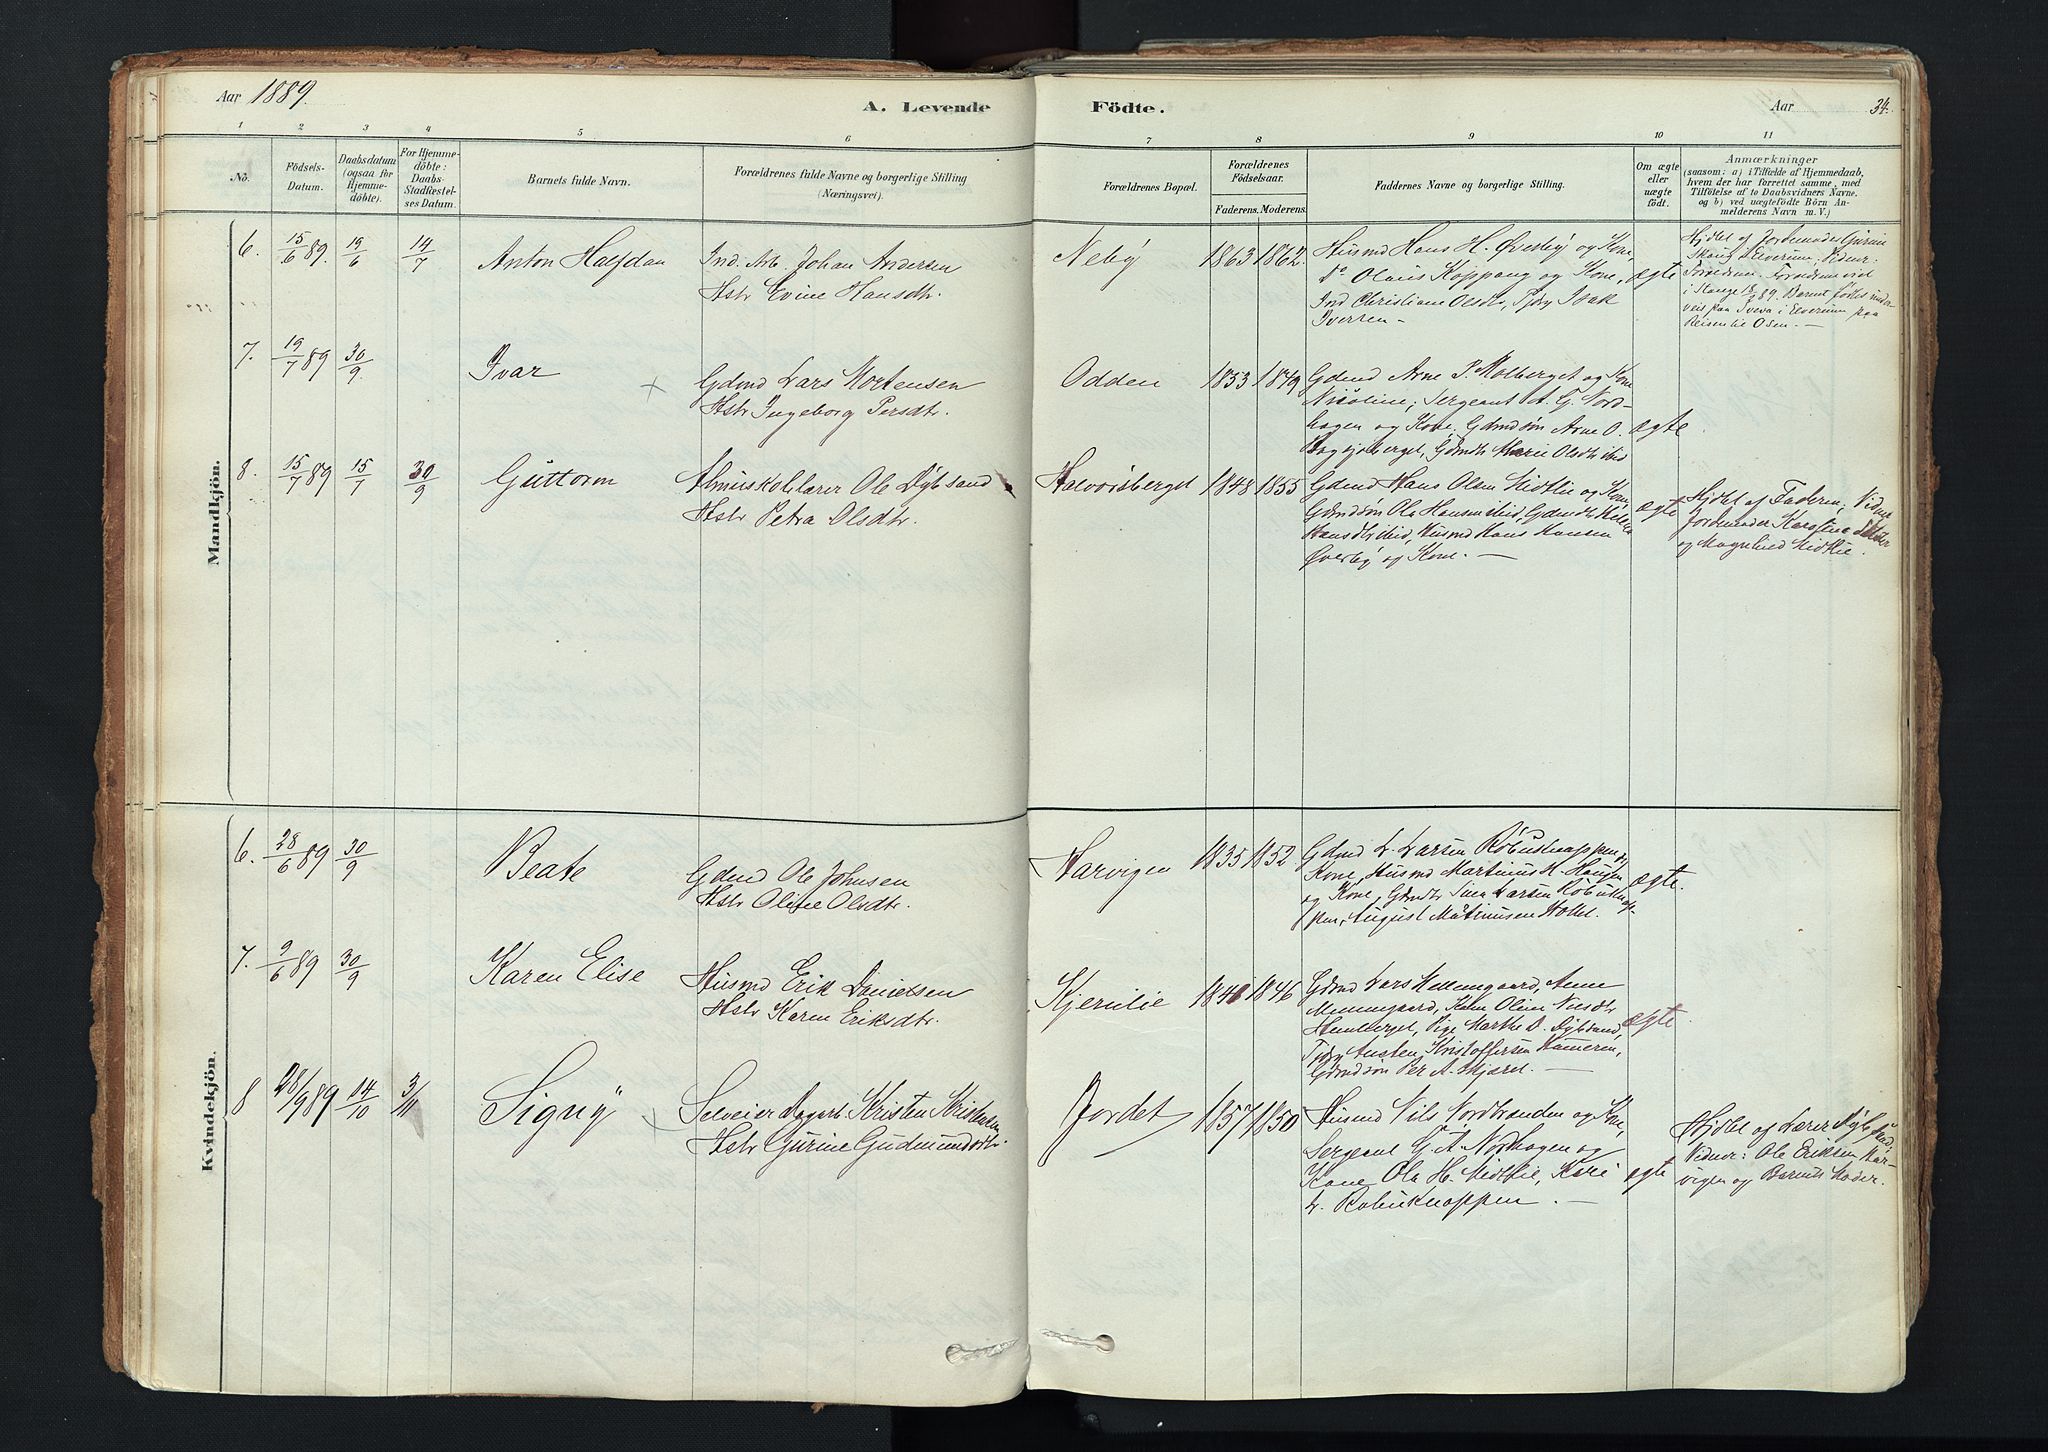 Aar 1889.
A. Levende Födte.
Aar 34.
1 2 3 4 5 6 7 8 9 10 11
No.
Födsels-Datum.
Daabsdatum (ogsaa for Hjemme-döbte).
For Hjemme-döbte: Daabs-Stadfæstel-ses Datum.
Barnets fulde Navn.
Forældrenes fulde Navne og borgerlige Stilling
(Næringsvei).
Forældrenes Bopæl.
Forældrenes Födselsaar.
Faderens. Moderens.
Faddernes Navne og borgerlige Stilling.
Om ægte eller uægte født.
Anmærkninger
(saasom: a) i Tilfælde af Hjemmedaab,
hvem der har forrettet samme, med
Tilföielse af to Daabsvidners Navne.
og b) ved uægtefödte Börn An-
melderens Navn m. V.)
Mandkjön.
6. 15/6 89. 19/6 14/7 Anton Halfdan
Ind. Arb. Johan Andersen
Hstr Evine Hansdtr.
Neby 1863 1862.
Husmd Hans H. Øverby og Kone,
do Olaus Koppang og Kone,
Ind Christiane Olsdtr, Tjgt Isak
Iversen –
ægte
Hjdbt af Jordemoder Gurine
Skaug Elverum; Vidner:
Forældrene. Forældrene viet
i Stange 18/ 89. Barnet födtes under-
veis paa Sveva i Elverum paa
Reisen til Osen. –
7. 19/7 89 30/9. Ivar
Gdmd Lars Mortensen
Hstr Ingeborg Persdtr.
Odden 1853 1849
Gdmd Arne P. Molberget og Kone
Nicoline, Sergeant A. G. Nord-
hagen og Kone. Gdmdsøn Arne O.
Gdmdtr Marie Olsdtr ibid
ægte
8. 15/7 89 15/7 30/9 Guttorm
Almuskolelærer Ole Dybsand
Hstr Petra Olsdtr.
Halvorsberget 1848 1855
Gdmd Hans Olsen Midtlie og Kone,
Gdmdsøn Ole Hansen ibid, Gdmdtr Helene
Hansdtr ibid, Husmd Hans Hansen
Øverby og Kone. –
ægte
Hjdbt af Faderen; Vidner
Jordemoder Karoline
og Magnhild Midtlie.
Kvindekjön.
6. 28/6 89 30/9 Beate
Gdmd Ole Johnsen
Hstr Oline Olsdtr.
Narvigen 1835 1852
Gdmd L. Larsen Röbusknappen og
Kone, Husmd Martinus H. Haugen
og Kone, Gdmdtr Larsen Röbuskap-
pen, August Martinusen Holtet.
ægte.
7. 9/6 89 30/9 Karen Elise
Husmd Erik Danielsen
Hstr Karen Eriksdtr.
Kjernlie 1840 1846
Gdmd Lars Mellemgaard, Anne
Mellemgaard, Oline Nilsdtr
Pige Marthe O. Dybsand,
Tjgt Austen Kristoffersen
Gdmdsøn Per A. –
ægte.
8 28/9 89 14/10 3/11 Signy
Selveier Dagarb. Kristen Kristensen
Hstr Gurine Gudmundsdtr.
Jordet 1857 1850
Husmd Nils Nordstranden og Kone,
Sergeant G. A. Nordhagen og
Kone Ole H. Midtlie, Kari
L. Röbuknappen. –
ægte
Hjdbt af Lærer Dybsand,
Vidner: Ole Eriksen Nar-
vigen og Barnets Moder.